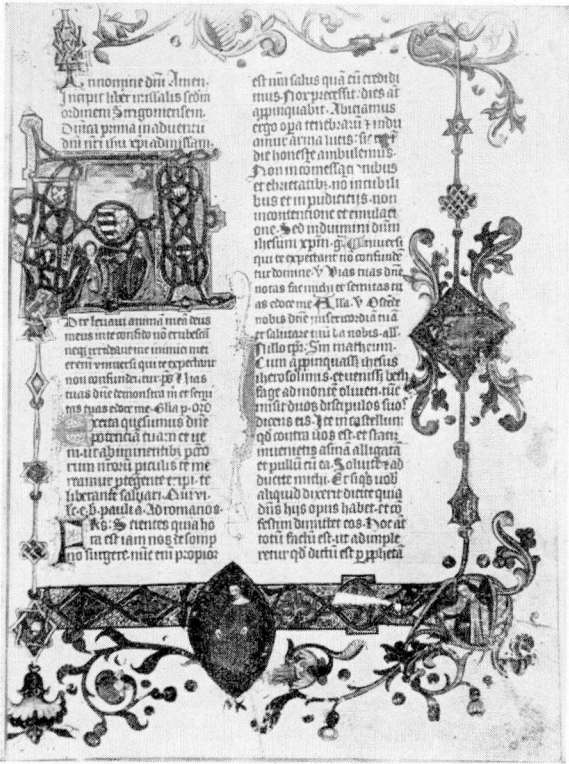 In nomine dm̄ Amen
Incipit liber missalis scdm̄
ordinem Strigoniensem.
Dn̄ica prima in adventu
dn̄i nr̄i ihū xp̄i ad missam.
D te levavi animā meā deus
meus in te confido nō erubescā
neq; irrideant me inimici mei
etem̄ universi qui te expectant
non confundentur. ps̄ Vias
tuas dn̄e demonstra m̄ et semi
tas tuas edoce me. Glīa p̄. orō
Excita quesumus dn̄e
potenciā tuam et ve
ni. ut ab iminentibꝫ pctō
rum nr̄orū piculis te me
reamur ptegente eripi. te
liberante salvari. Qui vi.
lc̄. e. b. pauli a. Ad romanos.
Scientes quia ho
ra est iam nos de somp
no surgere. nūc em̄ propior
est nrā salus quā cū credidi
mus. Nox precessit: dies aūt
appinquabit. Abiciamus
ergo opa tenebrarū et indu
amur arma lucis: sic ut
die honeste ambulemus.
Non in comessacionibus
et ebrietatibꝫ. nō in cubili
bus et in pudicitijs. non
in contentione et emulaci
one. Sed induimini dn̄m
ihesum xp̄m. g̃. Universi
qui te expectant nō confundē
tur domine. V̄ Vias tuas dn̄e
notas fac michi et semitas tu
as edoce me Alla. V̄ Ostēde
nobis dn̄e misericordiā tuā
et salutare tuū da nobis. all̄.
In illo tp̄r. Sm̄ matheum.
Cum appinquass; ihesus
iherosolimis. et veniss; beth
fage ad montē oliveti. tūc
misit duos discipulos suos
dicens eis. Ite in castellum
qd contra vos est. et statim
invenietis asinā alligatā
et pullū cū ea. Solvite et ad
ducite michi. Et siqs vob̄
aliquid dixerit dicite quia
dn̄s hijs opus habet. et cō
festim dimittet eos. Hoc aūt
totū factū est. ut adimple
retur qd dictū est p pphetā